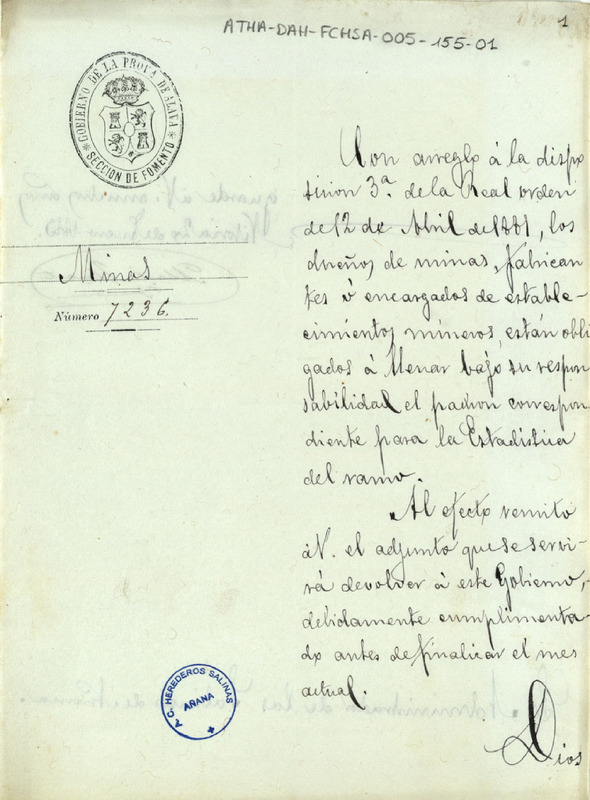 ATHA-DAH-FCHSA-005-155-01
1
GOBIERNO DE LA PROVA DE ALAVA
* SECCION DE FOMENTO *
Minas
Número 7236.
Con arreglo á la dispo
sicion 3ª. de la Real orden
de 12 de Abril de 1881, los
dueños de minas, fabrican
tes ó encargados de estable-
cimientos mineros, están obli
gados á llenar bajo su respon
sabilidad el padron correspon
diente para la Estadistica
del ramo.
Al efecto remito
á V. el adjunto que se servi-
rá devolver á este Gobierno,
debidamente cumplimenta-
do antes de finalizar el mes
actual.
Dios
A.C. HEREDEROS SALINAS
AÑANA